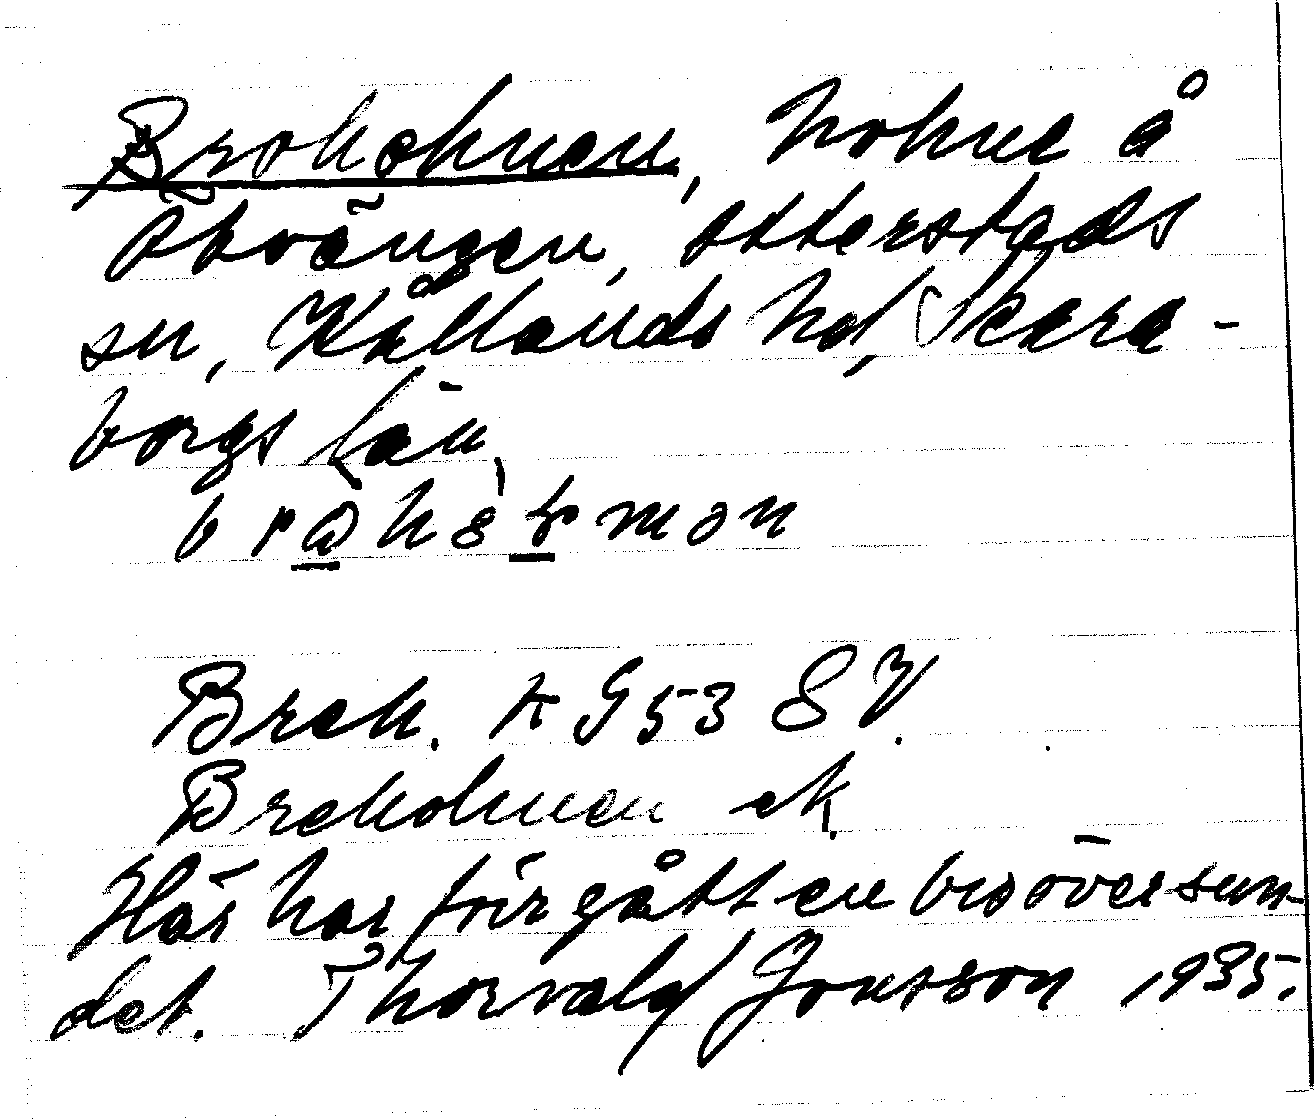 Broholmen, holme å
Åkvängen, Otterstads
sn, Kållands hd, Skara-
borgs län.
Brek. K G53 SV.
Breholmen ek.
Här har förr gått en bro över sun-
det. Thorvald Jonsson 1935.